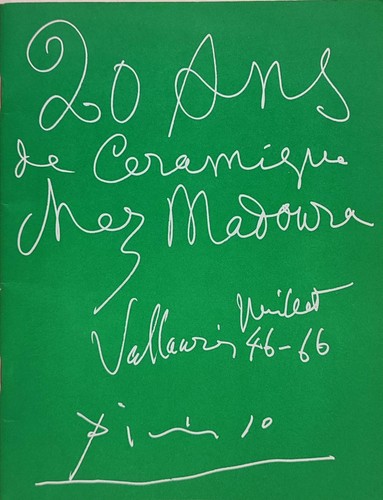 20 Ans
de Ceramique
chez Madoura
Vallauris juillet
46-66
Picasso